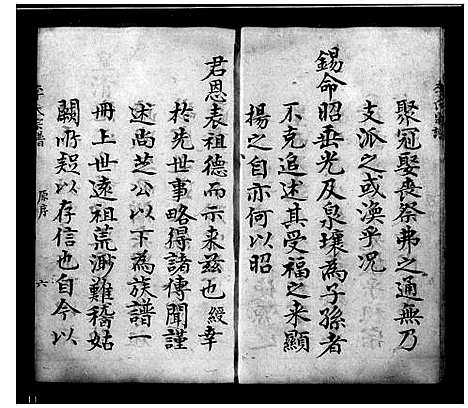 聚冠娶喪祭弗之通無乃
支派之或渙乎况
錫命昭垂光及泉壤為子孫者
不克追述其受福之来顯
揚之自亦何以昭
君恩表祖德而示来兹也綬幸
於先世事略得諸傳聞謹
述尚芝公以下為族譜一
冊上世遠祖荒渺難稽姑
闕所疑以存信也自今以
原序
六